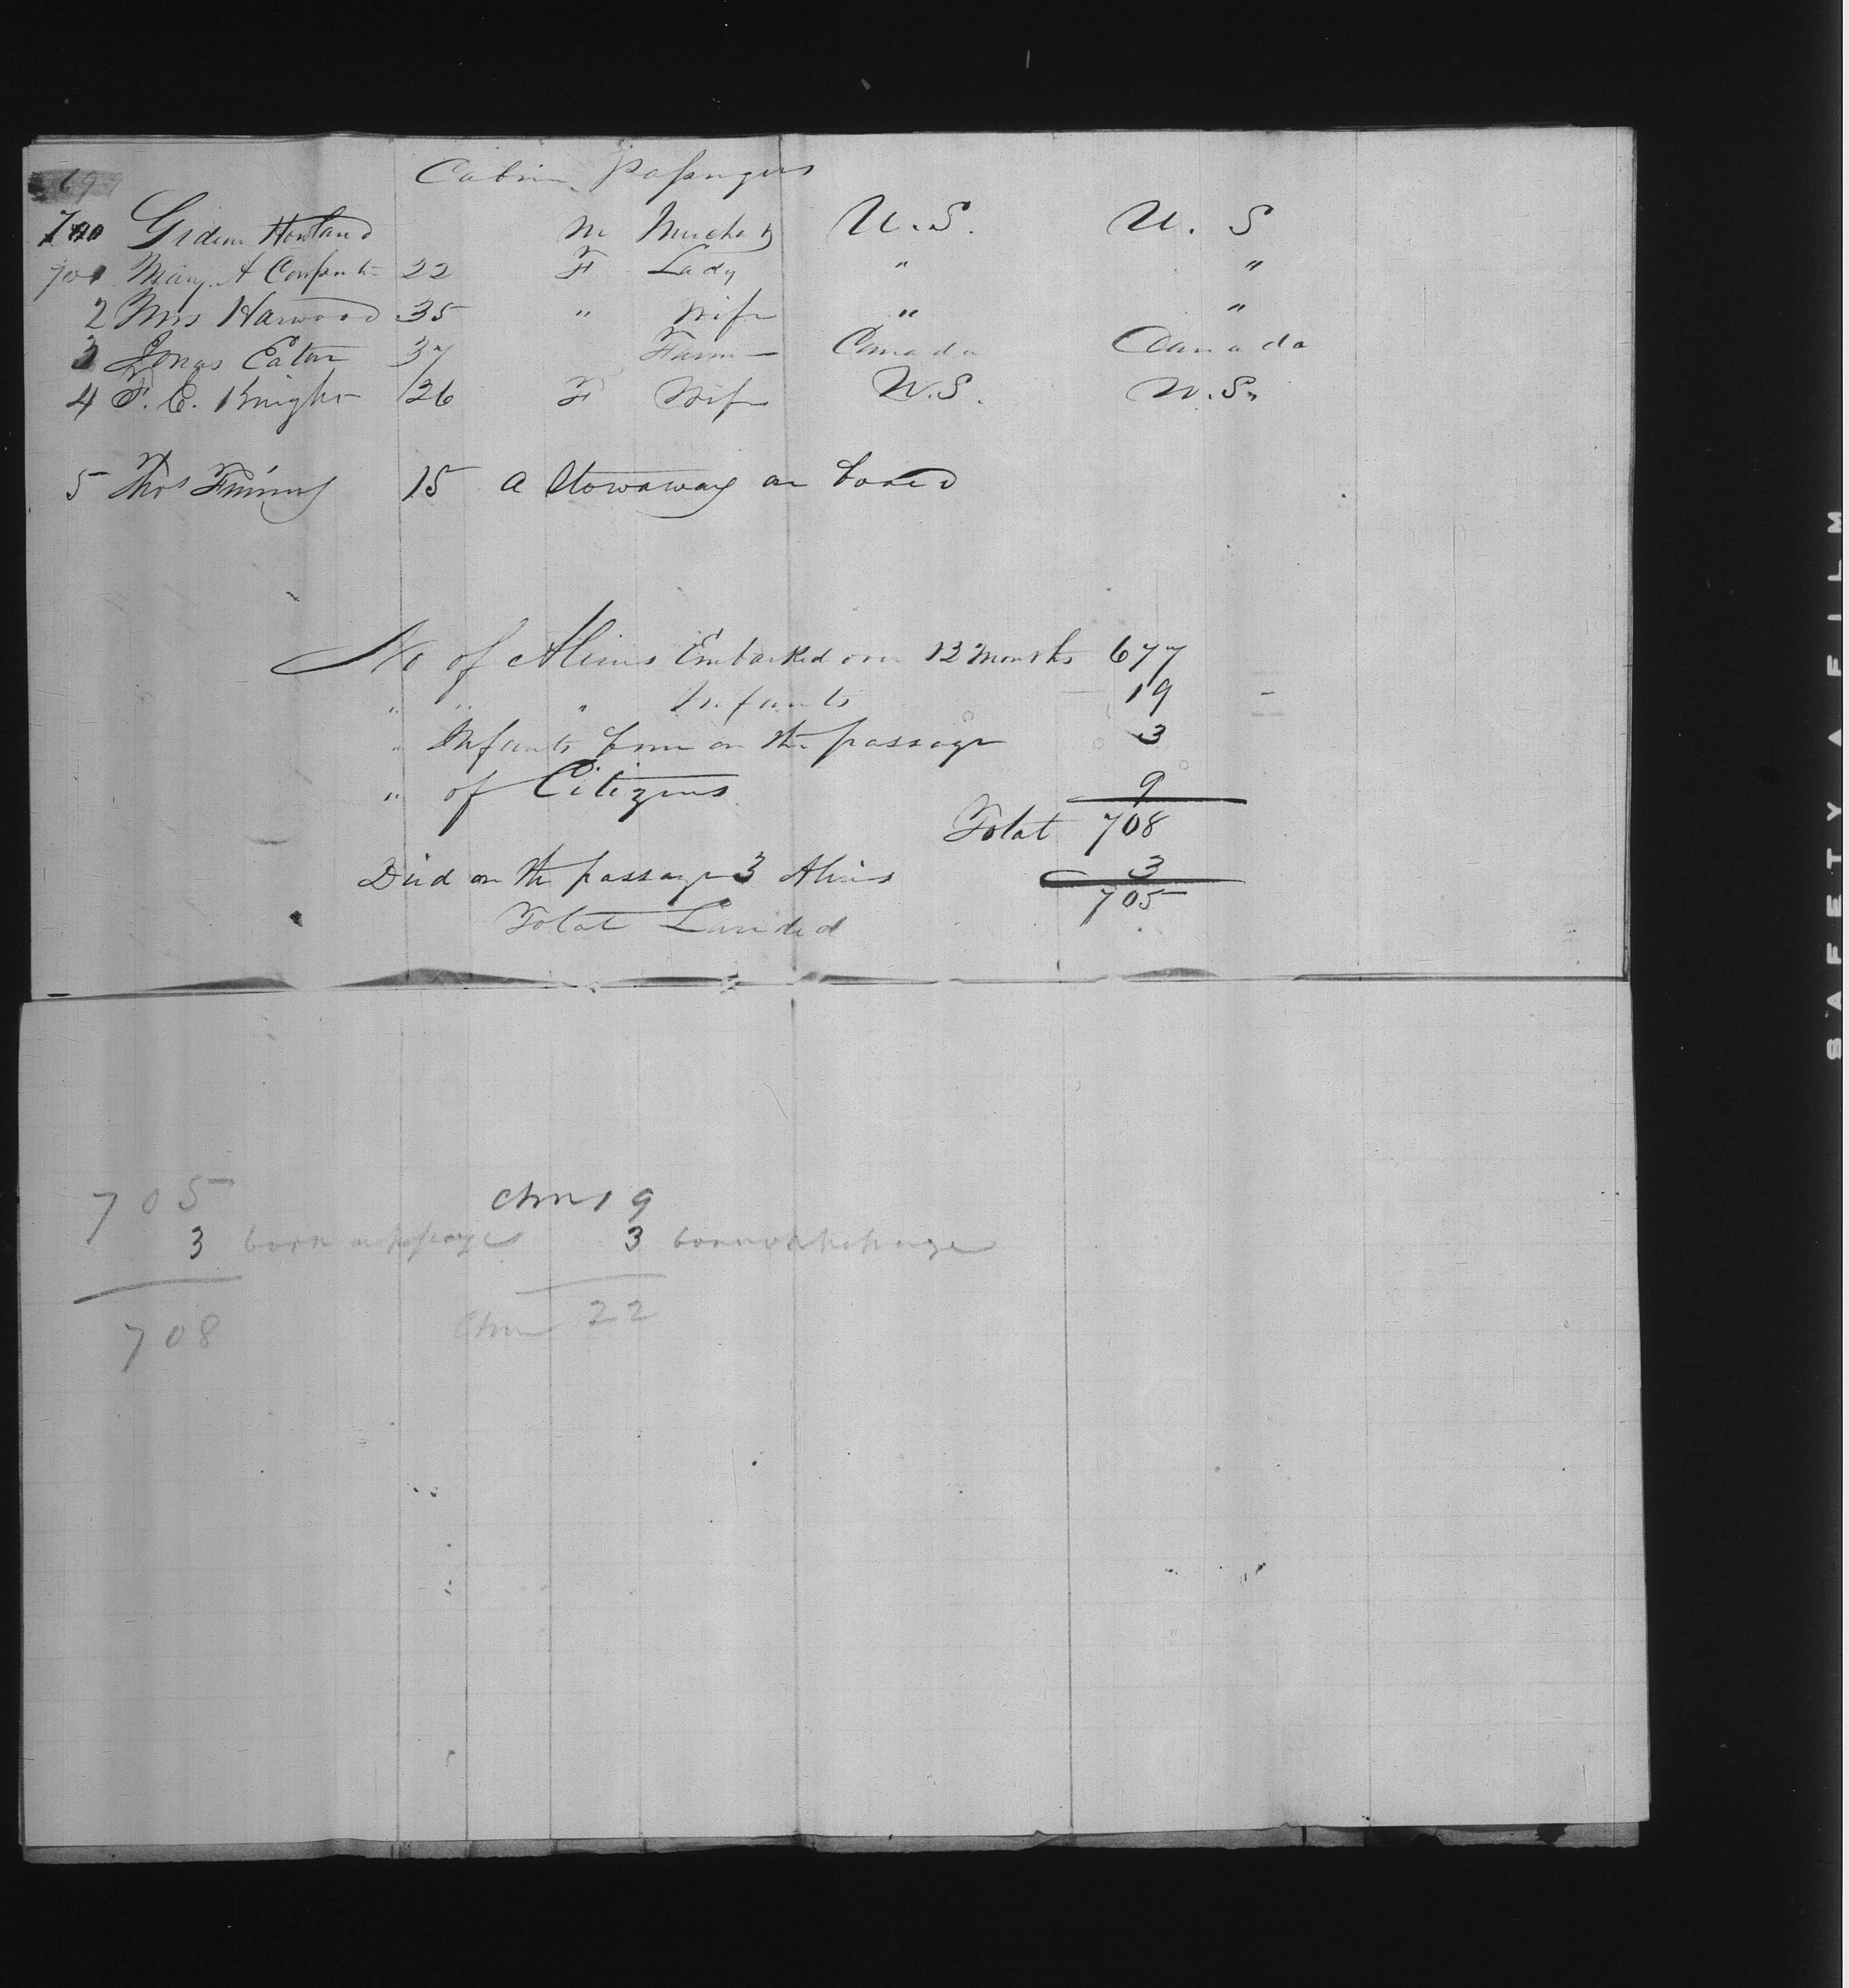 Cabin Passengers
699
700 Gideon Howland M Merchant U.S. U.S
701 Mary A Carpenter 22 F Lady " "
2 Mrs Harwood 35 " Wife " "
3 Jonas Eaton 37 Farm Canada Canada
4 F. C. Knight 26 F Wife U.S. U.S.
5 Thos 15 a Stowaway on board
No of Aliens Embarked over 12 Months 677
" " " Infants 19
" Infants born on the passage 3
" of Citizens 9
Total 708
Died on the passage 3 Aliens 3
Total Landed 705
705 Chn 19
3 born on passage 3 born on the passage
708 Chn 22
SAFETY FILM